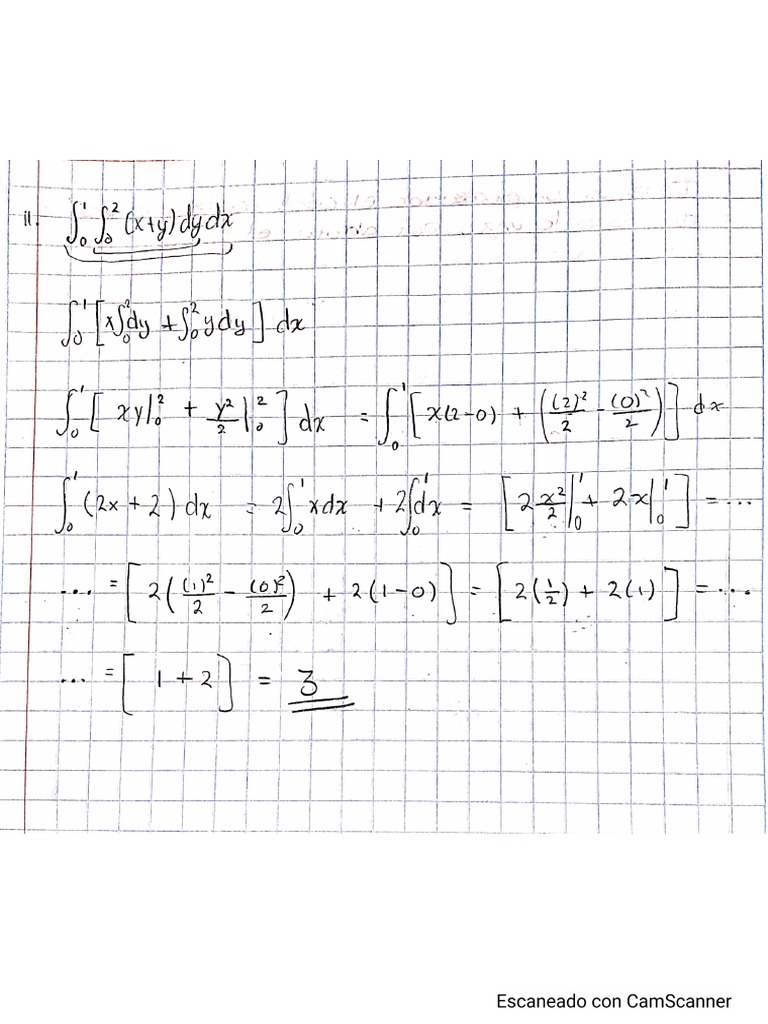 11. ∫₀¹ ∫₀² (x+y) dy dx
∫₀¹ [x∫₀² dy + ∫₀² y dy] dx
∫₀¹ [xy|₀² + y²/2|₀²] dx = ∫₀¹ [x(2-0) + ((2)²/2 - (0)²/2)] dx
∫₀¹ (2x + 2) dx = 2∫₀¹ x dx + 2∫₀¹ dx = [2 x²/2|₀¹ + 2x|₀¹] = ...
... = [2((1)²/2 - (0)²/2) + 2(1-0)] = [2(1/2) + 2(1)] = ...
... = [1 + 2] = 3
Escaneado con CamScanner